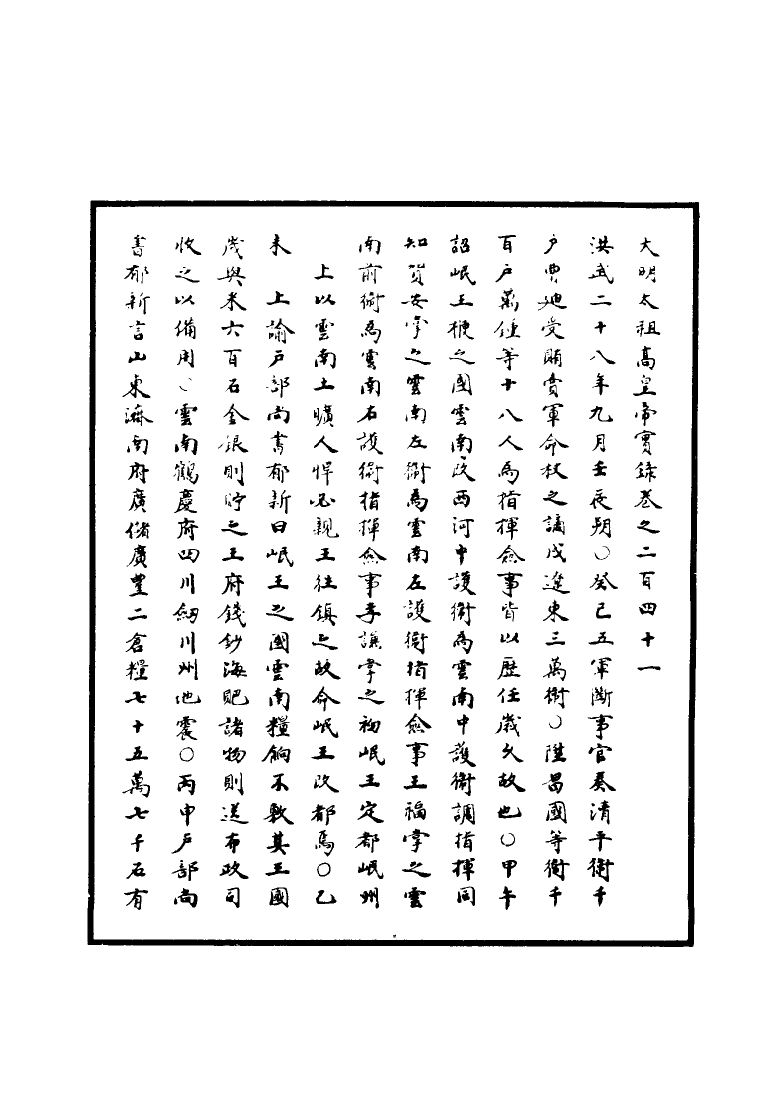 大明太祖高皇帝實錄卷之二百四十一
洪武二十八年九月壬辰朔○癸巳五軍斷事官奏清平衛千
戶曹廸受賄賣軍命杖之謫戍遼東三萬衛○陞昌國等衛千
百戶萬鍾等十八人為指揮僉事皆以歷任歲久故也○甲午
詔岷王楩之國雲南改西河中護衛為雲南中護衛調指揮同
知賀安掌之雲南左衛為雲南左護衛指揮僉事王福掌之雲
南前衛為雲南右護衛指揮僉事李讓掌之初岷王定都岷州
上以雲南土曠人悍必親王往鎮之故命岷王改都焉○乙
未 上諭戶部尚書郁新曰岷王之國雲南糧餉不敷其王國
歲與米六百石金銀則貯之王府錢鈔海𧵅諸物則送布政司
收之以備用○雲南鶴慶府四川劒川州地震○丙申戶部尚
書郁新言山東濟南府廣儲廣豐二倉糧七十五萬七千石有